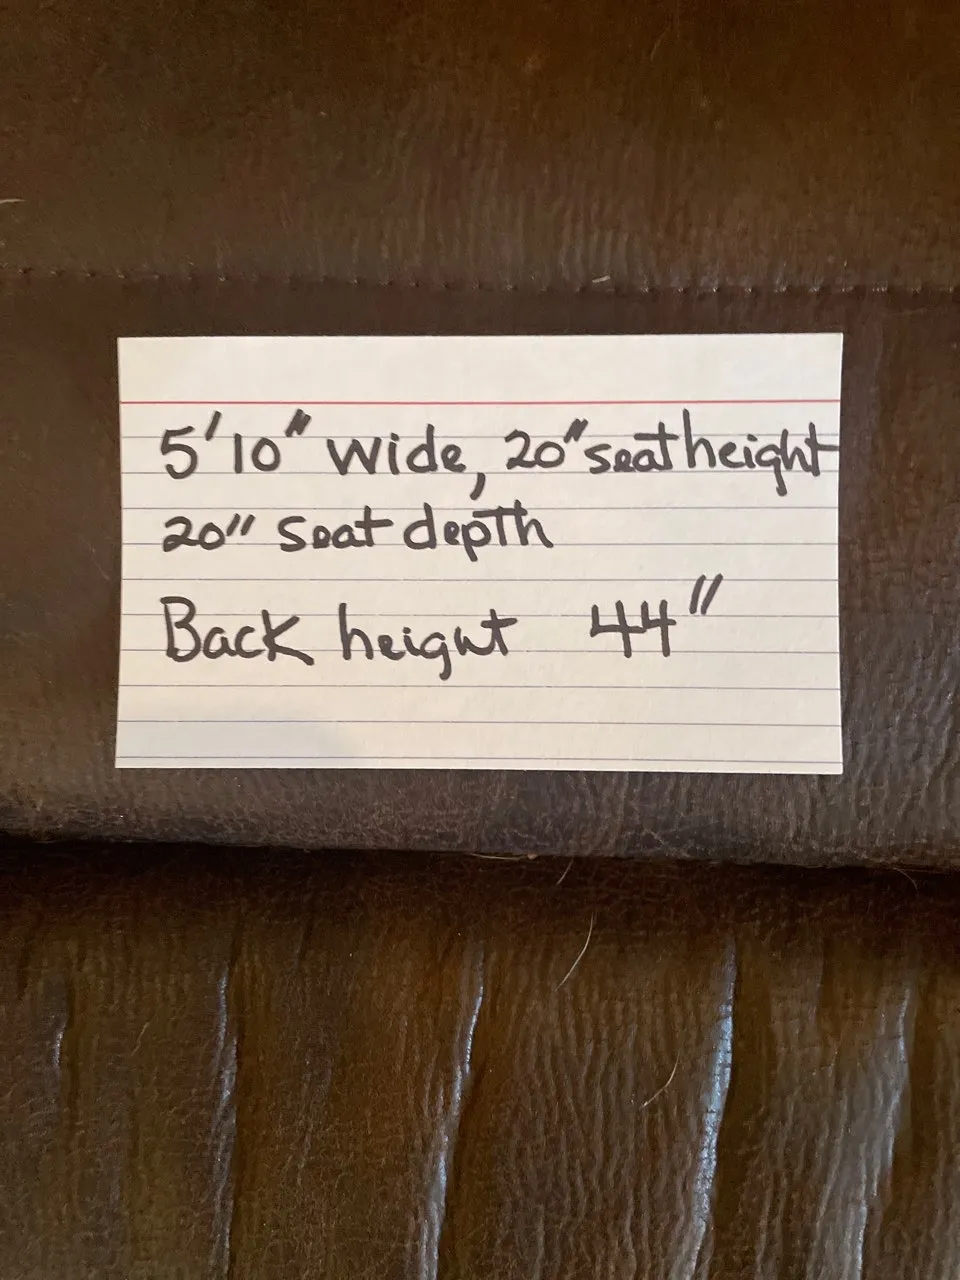 5'10" wide, 20" seat height
20" seat depth
Back height 44"